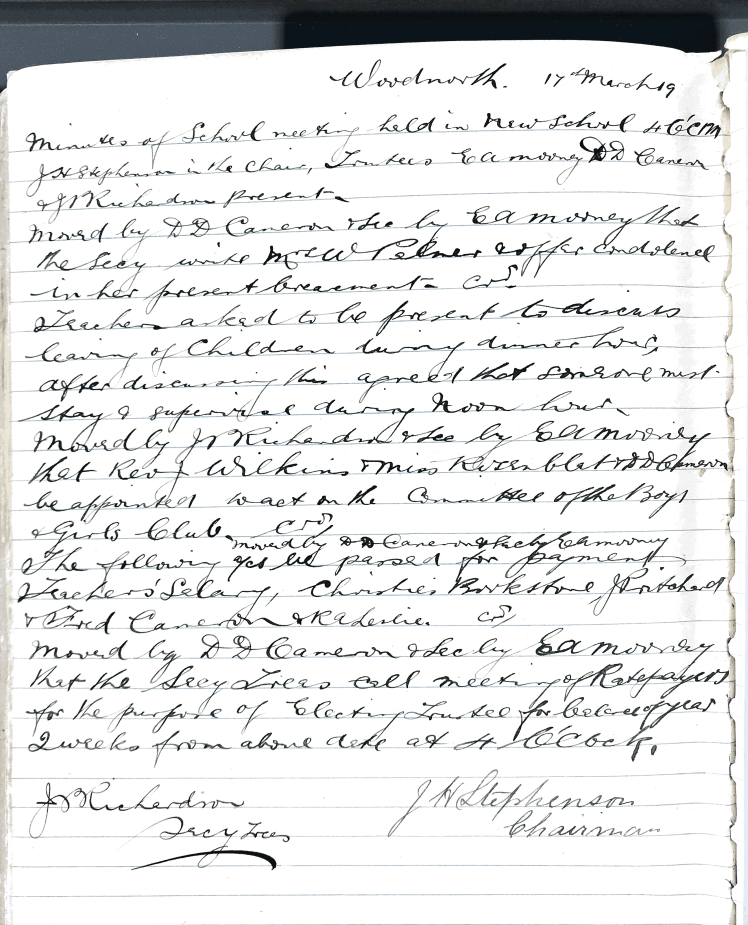 Woodnorth. 17th March 19
Minutes of School meeting held in New School 4 O'C PM
J H Stephenson in the Chair, Trustees E A Mooney D D Cameron
& J P Richardson present-
Moved by D D Cameron & Sec by E A Mooney that
the Secy write Mrs W Pelmer & offer condolence
in her present breavement- crd
Teachers asked to be present to discuss
leaving of Children during dinner hour,
after discussing this agreed that someone must
stay & supervise during Noon hour-
Moved by J P Richardson & Sec by E A Mooney
that Rev J Wilkins & Miss & D D Cameron
be appointed to act on the Committee of the Boys
& Girls Club. crd
moved by D D Cameron & Sec by E A Mooney
The following acs be passed for payment
Teachers' Salary, Christies Bookstore, J Pritchard
& Fred Cameron & R A Leslie. crd
Moved by D D Cameron & Sec by E A Mooney
that the Secy Treas call meeting of Ratepayers
for the purpose of Electing Trustee for balance of year
2 weeks from above date at 4 O'Clock.
J P Richardson J H Stephenson
Secy Treas Chairman